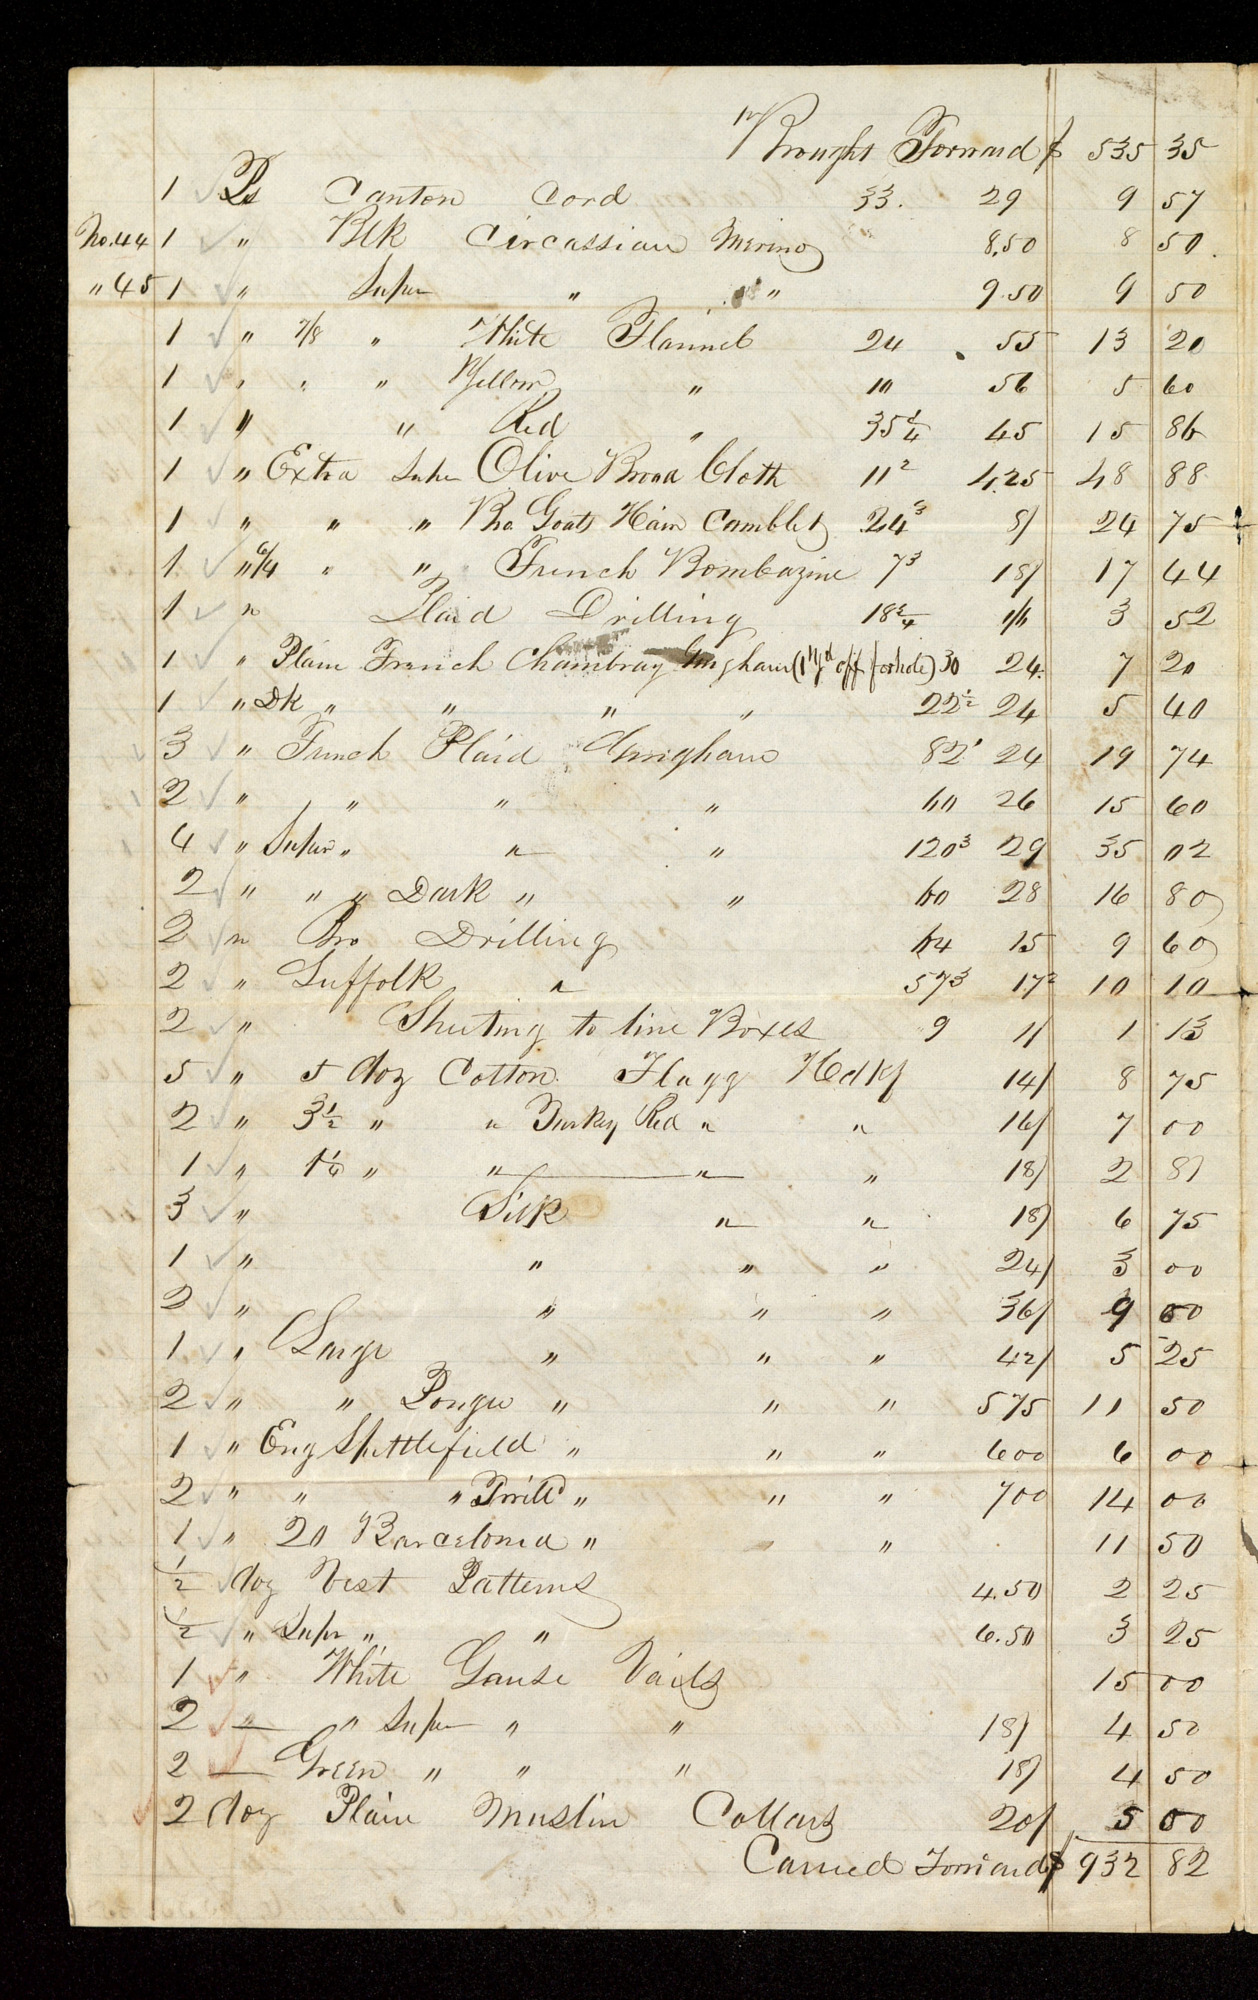 Brought Forward $ 535 35
1 Ps Canton Cord 33. 29 9 57
No. 44 1 " Blk Circassian Merino 8.50 8 50
" 45 1 " Super " " 9.50 9 50
1 " 7/8 " White Flannel 24 55 13 20
1 " " " Yellow " 10 56 5 60
1 " " Red " 35 1/4 45 15 86
1 " Extra Super Olive Broad Cloth 11 2 4.25 48 88
1 " " " Bro Goats Hair Camblet 24 3 8/ 24 75
1 " 6/4 " " French Bombazine 7 3 18/ 17 44
1 " Plaid Drilling 18 3/4 1/6 3 52
1 " Plain French Chambray Gingham (1 Yd off for hole) 30 24 7 20
1 " Dk " " " " 22 1/2 24 5 40
3 " French Plaid Gingham 82 1 24 19 74
2 " " " " 60 26 15 60
4 " Super " " " 120 3 29 35 02
2 " " " Dark " " 60 28 16 80
2 " Bro Drilling 64 15 9 60
2 " Suffolk " 57 3 17 2 10 10
2 " Sheeting to line Boxes 9 1/ 1 13
5 " 5 doz Cotton Flagg Hdkf 14/ 8 75
2 " 3 1/2 " " Turkey Red " " 16/ 7 00
1 " 1 1/4 " " " " 18/ 2 81
3 " Silk " " 18/ 6 75
1 " " " " 24/ 3 00
2 " " " " 36/ 9 00
1 " Large " " " 42/ 5 25
2 " " Pongee " " " 575 11 50
1 " Eng Spittlefield " " " 600 6 00
2 " " " Twill'd " " " 700 14 00
1 " 20 Barcelona " " 11 50
1/2 doz Vest Patterns 4.50 2 25
1/2 " Supr " " 6.50 3 25
1 " White Gause Vails 15 00
2 — " Super " " 18/ 4 50
2 — Green " " " 18/ 4 50
2 doz Plain Muslin Collars 20/ 5 00
Carried Forward $ 932 82